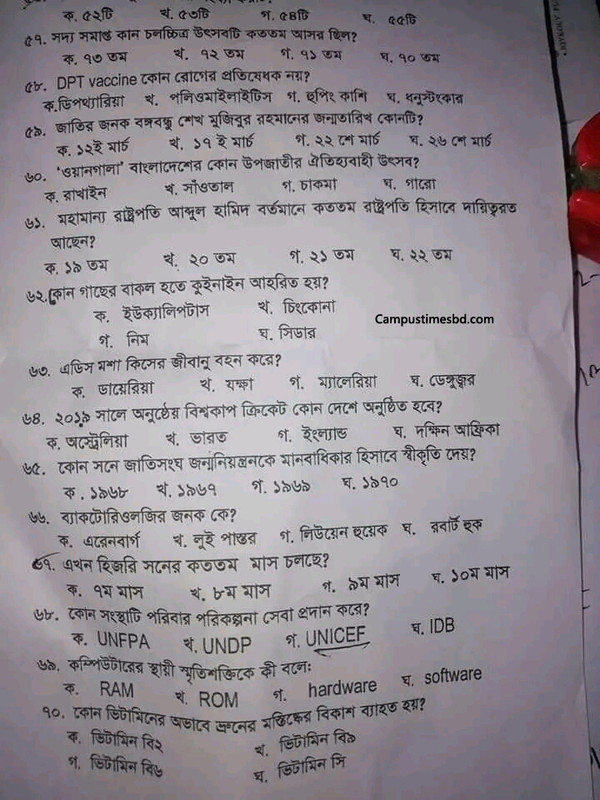 ক. ৫২টি খ. ৫৩টি গ. ৫৪টি ঘ. ৫৫টি
৫৭. সদ্য সমাপ্ত কান চলচ্চিত্র উৎসবটি কততম আসর ছিল?
ক. ৭৩ তম খ. ৭২ তম গ. ৭১ তম ঘ. ৭০ তম
৫৮. DPT vaccine কোন রোগের প্রতিষেধক নয়?
ক.ডিপথ্যারিয়া খ. পলিওমাইলাইটিস গ. হুপিং কাশি ঘ. ধনুস্টংকার
৫৯. জাতির জনক বঙ্গবন্ধু শেখ মুজিবুর রহমানের জন্মতারিখ কোনটি?
ক. ১২ই মার্চ খ. ১৭ ই মার্চ গ. ২২ শে মার্চ ঘ. ২৬ শে মার্চ
৬০. 'ওয়ানগালা' বাংলাদেশের কোন উপজাতীর ঐতিহ্যবাহী উৎসব?
ক. রাখাইন খ. সাঁওতাল গ. চাকমা ঘ. গারো
৬১. মহামান্য রাষ্ট্রপতি আব্দুল হামিদ বর্তমানে কততম রাষ্ট্রপতি হিসাবে দায়িত্বরত
আছেন?
ক. ১৯ তম খ. ২০ তম গ. ২১ তম ঘ. ২২ তম
৬২.কোন গাছের বাকল হতে কুইনাইন আহরিত হয়?
ক. ইউক্যালিপটাস খ. চিংকোনা
গ. নিম ঘ. সিডার
Campustimesbd.com
৬৩. এডিস মশা কিসের জীবানু বহন করে?
ক. ডায়েরিয়া খ. যক্ষা গ. ম্যালেরিয়া ঘ. ডেঙ্গুজ্বর
৬৪. ২০১৯ সালে অনুষ্ঠেয় বিশ্বকাপ ক্রিকেট কোন দেশে অনুষ্ঠিত হবে?
ক. অস্ট্রেলিয়া খ. ভারত গ. ইংল্যান্ড ঘ. দক্ষিন আফ্রিকা
৬৫. কোন সনে জাতিসংঘ জন্মনিয়ন্ত্রনকে মানবাধিকার হিসাবে স্বীকৃতি দেয়?
ক . ১৯৬৮ খ. ১৯৬৭ গ. ১৯৬৯ ঘ. ১৯৭০
৬৬. ব্যাকটোরিওলজির জনক কে?
ক. এরেনবার্গ খ. লুই পাস্তুর গ. লিউয়েন হুয়েক ঘ. রবার্ট হুক
৬৭. এখন হিজরি সনের কততম মাস চলছে?
ক. ৭ম মাস খ. ৮ম মাস গ. ৯ম মাস ঘ. ১০ম মাস
৬৮. কোন সংস্থাটি পরিবার পরিকল্পনা সেবা প্রদান করে?
ক. UNFPA খ. UNDP গ. UNICEF ঘ. IDB
৬৯. কম্পিউটারের স্থায়ী স্মৃতিশক্তিকে কী বলে:
ক. RAM খ. ROM গ. hardware ঘ. software
৭০. কোন ভিটামিনের অভাবে ভ্রুনের মস্তিষ্কের বিকাশ ব্যাহত হয়?
ক. ভিটামিন বি২ খ. ভিটামিন বি৯
গ. ভিটামিন বি৬ ঘ. ভিটামিন সি